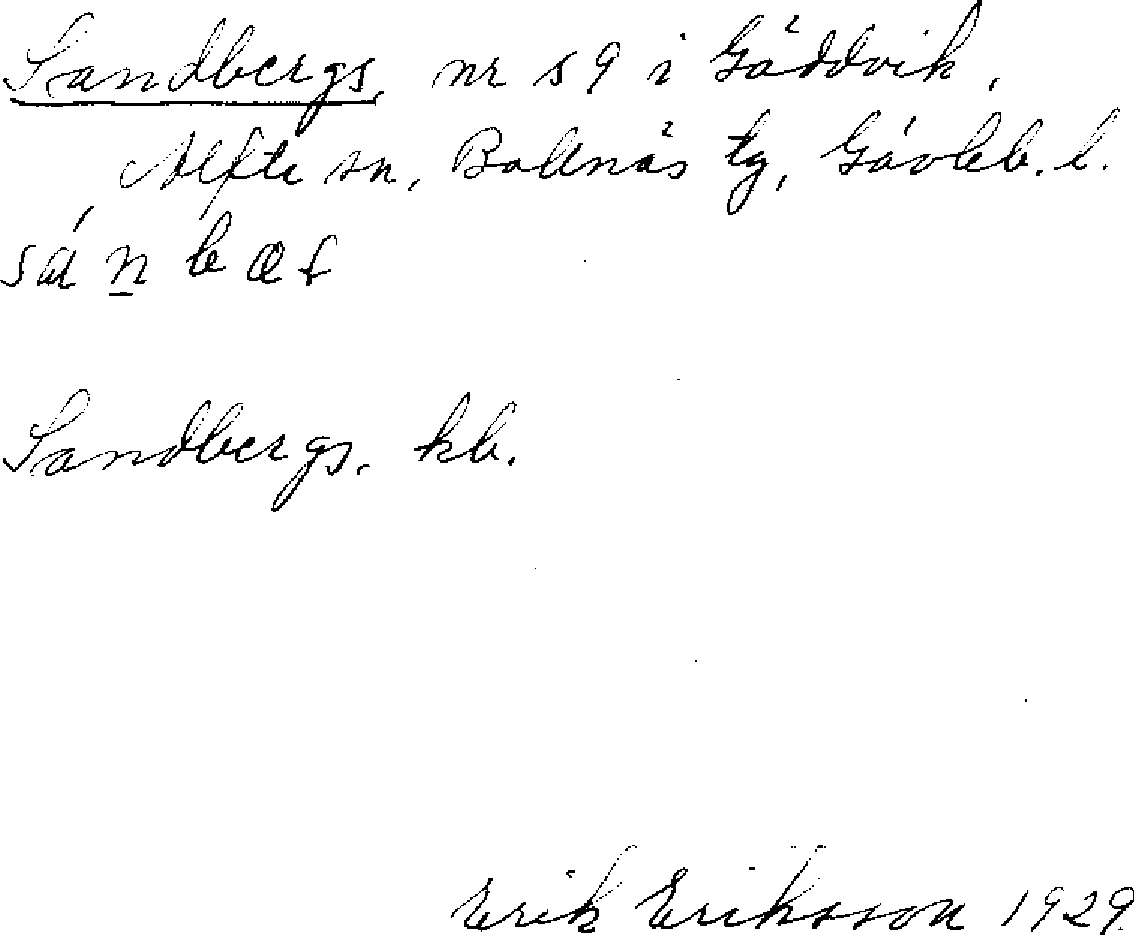 Sandbergs, nr 59 i Gäddvik,
Alfta sn, Bollnäs tg, Gävleb. l.
sánbæſ
Sandbergs, kb.
Erik Eriksson 1929.